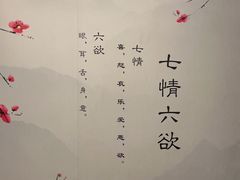 七情六欲
七情
喜，怒，哀，乐，爱，恶，欲。
六欲
眼，耳，舌，身，意。